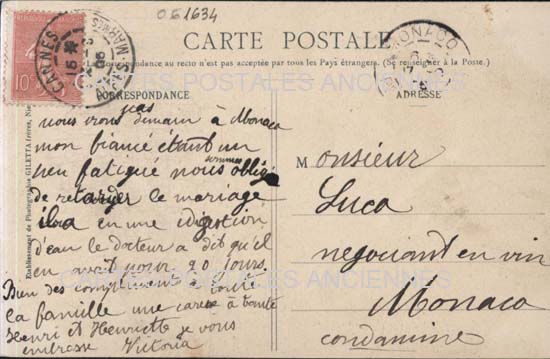 061634
CARTE POSTALE
La correspondance au recto n'est pas acceptée par tous les Pays étrangers. (Se renseigner à la Poste.)
CORRESPONDANCE
ADRESSE
CARTES POSTALES ANCIENNES
CARTES POSTALES ANCIENNES
CANNES
ALPES MARITIMES
MONACO
10
Etablissement de Photographie GILETTA frères, Nice
pas
nous irons demain à Monaco
mon fiancé étant un
peu fatigué nous sommes obligé
de retarder le mariage
il a eu une idigestion
d'eau le docteur a dit qu'el
en avait pour 20 jours
Bien des compliments à toute
la famille une caresse à toute
Henri et Henriette je vous
embrasse Victoria
Monsieur
Luca
negociant en vin
Monaco
condamine